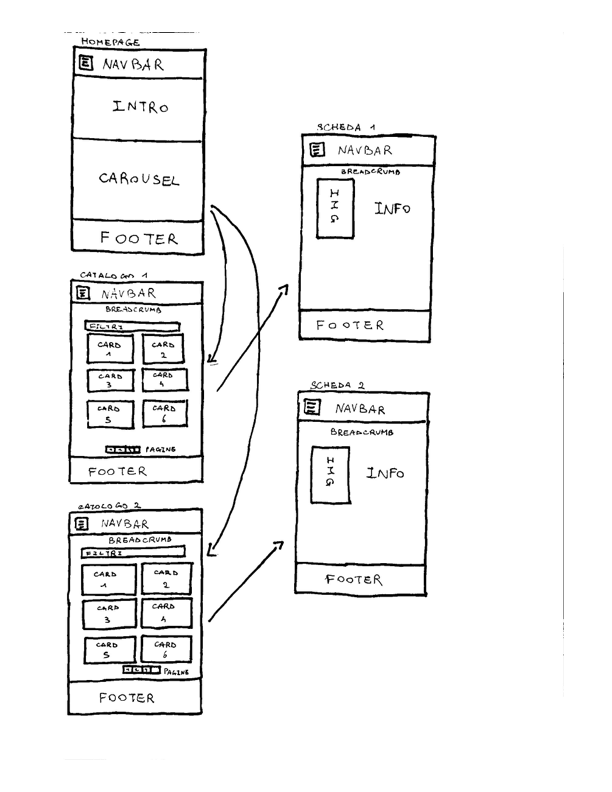 HOMEPAGE
NAVBAR
INTRO
CAROUSEL
FOOTER
CATALOGO 1
NAVBAR
BREADCRUMB
FILTRI
CARD 1
CARD 2
CARD 3
CARD 4
CARD 5
CARD 6
PAGINE
FOOTER
CATOLOGO 2
NAVBAR
BREADCRUMB
FILTRI
CARD 1
CARD 2
CARD 3
CARD 4
CARD 5
CARD 6
PAGINE
FOOTER
SCHEDA 1
NAVBAR
BREADCRUMB
IMG
INFO
FOOTER
SCHEDA 2
NAVBAR
BREADCRUMB
IMG
INFO
FOOTER